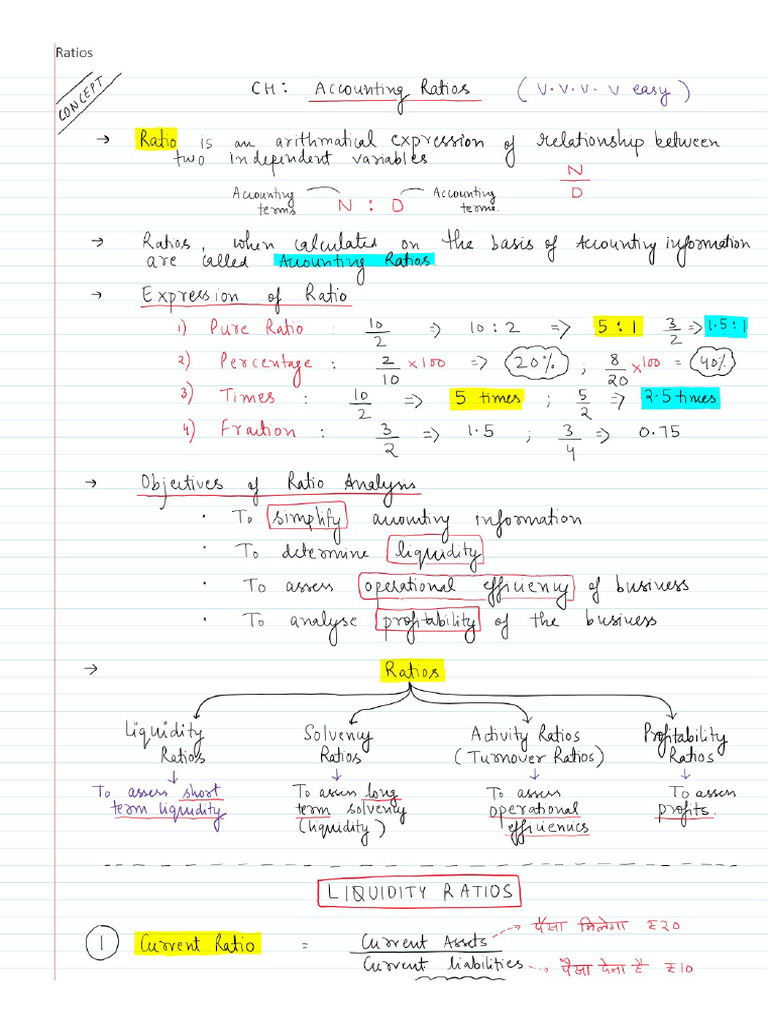 Ratios
CONCEPT
CH: Accounting Ratios (V.V.V.V easy)
→ Ratio is an arithmatical expression of relationship between
two independent variables
N
D
Accounting terms N : D Accounting terms.
→ Ratios, when calculated on the basis of Accounting information
are called Accounting Ratios.
→ Expression of Ratio
1) Pure Ratio : 10/2 => 10 : 2 => 5 : 1 3/2 => 1.5 : 1
2) Percentage : 2/10 × 100 => 20% ; 8/20 × 100 = 40%
3) Times : 10/2 => 5 times ; 5/2 => 2.5 times
4) Fraction : 3/2 => 1.5 ; 3/4 => 0.75
→ Objectives of Ratio Analysis
· To simplify accounting information
· To determine liquidity
· To assess operational efficiency of business
· To analyse profitability of the business
→ Ratios
Liquidity Ratios
To assess short term liquidity
Solvency Ratios
To assess long term solvency (liquidity)
Activity Ratios (Turnover Ratios)
To assess operational efficiencies
Profitability Ratios
To assess profits.
LIQUIDITY RATIOS
1 Current Ratio = Current Assets → पैसा मिलेगा ₹20
Current liabilities → पैसा देना है ₹10